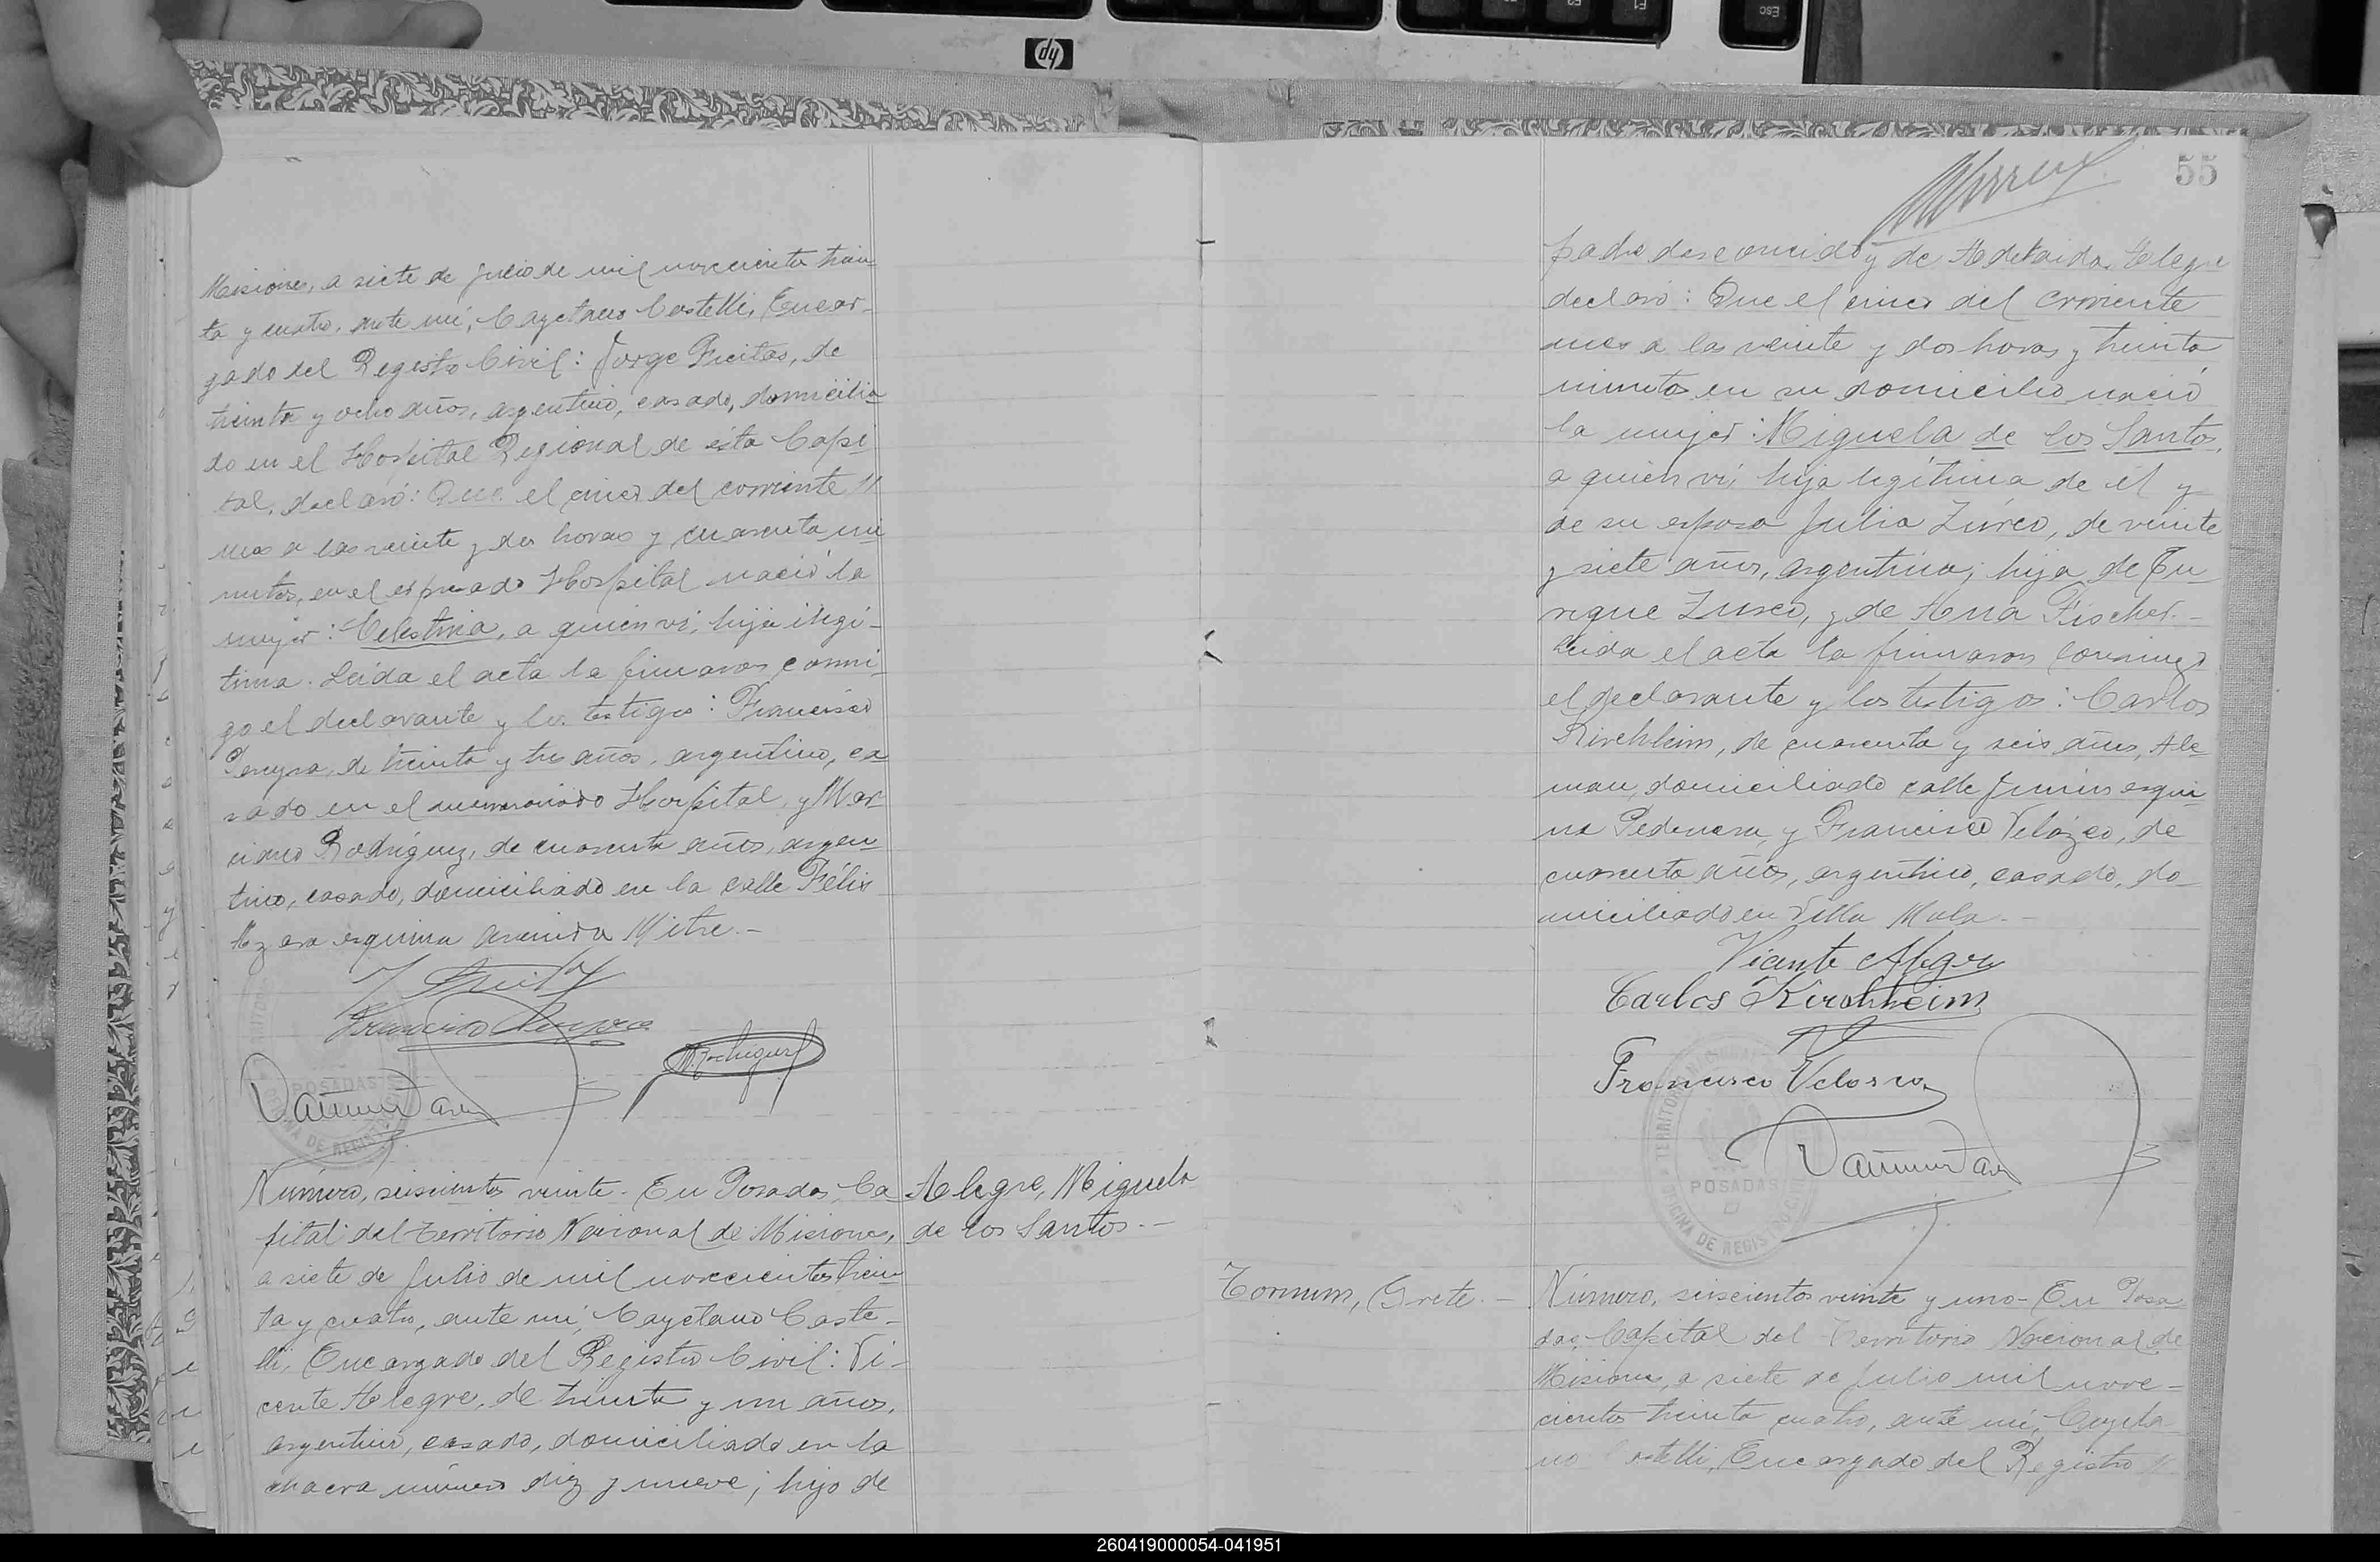 Misiones, a siete de julio de mil novecientos trein
ta y cuatro, ante mí, Cayetano Castelli, Encar-
gado del Registro Civil: Jorge Freitas, de
treinta y ocho años, argentino, casado, domicilia
do en el Hospital Regional de ésta Capi
tal, declaró: Que el cinco del corriente
mes a las veinte y dos horas y cuarenta mi
nutos, en el expresado Hospital nació la
mujer: Celestina, a quien ví, hija ilegí-
tima. Leída el acta la firmaron conmi
go el declarante y los testigos: Francisco
Pereyra, de treinta y tres años, argentino, ca
sado en el mencionado Hospital, y Mar
ciano Rodríguez, de cuarenta años, argen
tino, casado, domiciliado en la calle Félix
Azara esquina avenida Mitre.-
J Freitas
Francisco Pereyra
M. Rodriguez
POSADAS
OFICINA DE REGISTRO
Número, seiscientos veinte. En Posadas, Ca
pital del Territorio Nacional de Misiones,
a siete de Julio de mil novecientos trein
ta y cuatro, ante mí, Cayetano Caste-
lli, Encargado del Registro Civil: Vi-
cente Alegre, de treinta y un años,
argentino, casado, domiciliado en la
chacra número diez y nueve; hijo de
Alegre, Miguela
de los Santos.-
55
padre desconocido y de Adelaida Alegre
declaró: Que el cinco del corriente
mes a las veinte y dos horas y treinta
minutos en su domicilio nació
la mujer: Miguela de los Santos,
a quien ví, hija legítima de él y
de su esposa Julia Zúrco, de veinte
y siete años, argentina; hija de En
rique Zurco, y de Ana Fischer.-
Leida el acta la firmaron conmigo
el declarante y los testigos: Carlos
Kirchheim, de cuarenta y seis años, Ale
man, domiciliado calle Junín esqui
na Pedernera, y Francisco Velázco, de
cuarenta años, argentino, casado, do-
miciliado en Villa Mola.-
Vicente Alegre
Carlos Kirchheim
Francisco Velosco
TERRITORIO
POSADAS
OFICINA DE REGISTRO CIVIL
Tornum, Grete.-
Número, seiscientos veinte y uno- En Posa
das, Capital del Territorio Nacional de
Misiones, a siete de Julio mil nove-
cientos treinta cuatro, ante mí, Cayeta
no Castelli, Encargado del Registro
hp
Esc
F1
F2
260419000054-041951